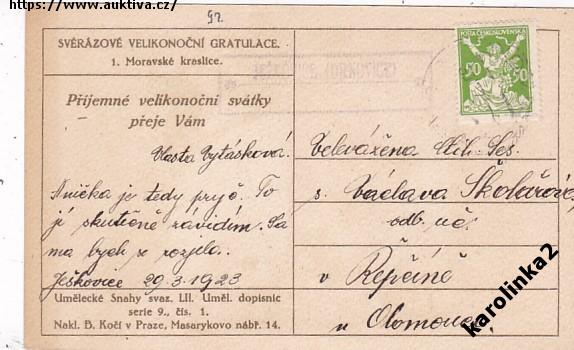 https://www.auktiva.cz/
92
SVÉRÁZOVÉ VELIKONOČNÍ GRATULACE.
1. Moravské kraslice.
Příjemné velikonoční svátky
přeje Vám
Vlasta Vytásková.
Anička je tedy pryč. To
jí skutečně závidím. Sa
ma bych se rozjela..
Ješkovice 29.3.1923
Umělecké Snahy svaz. LII. Uměl. dopisnic
serie 9., čís. 1.
Nakl. B. Kočí v Praze, Masarykovo nábř. 14.
POŠTA ČESKOSLOVENSKÁ
50 50
Velevážena
s. Václava Školářová,
odb. uč.
v Řepčíně
u Olomouce
karolinka2